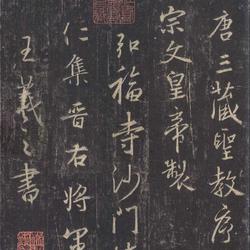 唐三藏聖教序
宗文皇帝製
弘福寺沙門
仁集晉右將軍
王羲之書